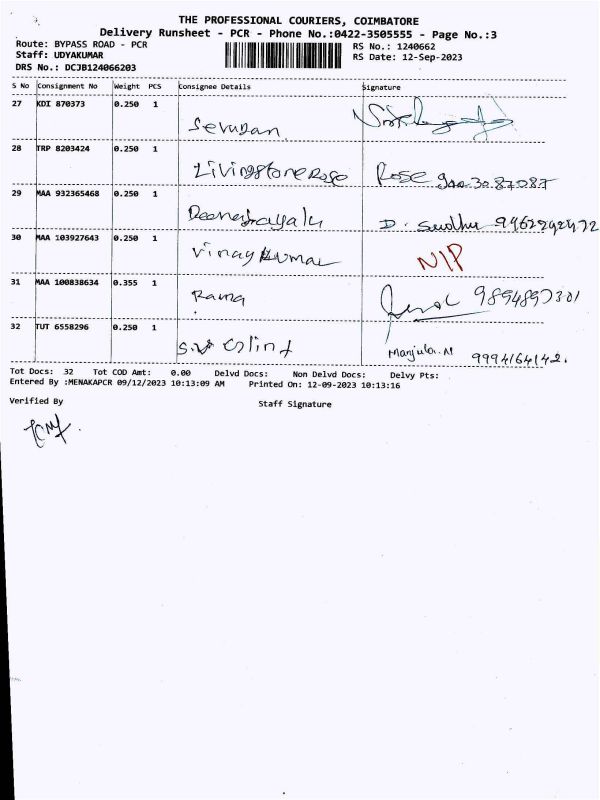 THE PROFESSIONAL COURIERS, COIMBATORE
Delivery Runsheet - PCR - Phone No.:0422-3505555 - Page No.:3
Route: BYPASS ROAD - PCR
RS No.: 1240662
Staff: UDYAKUMAR
RS Date: 12-Sep-2023
DRS No.: DCJB124066203
S No Consignment No Weight PCS Consignee Details Signature
27 KDI 870373 0.250 1
28 TRP 8203424 0.250 1 Livingstone Rose Rose
29 MAA 932365468 0.250 1
30 MAA 103927643 0.250 1 Vinay Kumar N/P
31 MAA 100838634 0.355 1 Rama
32 TUT 6558296 0.250 1 Manjula. M 9994164142.
Tot Docs: 32 Tot COD Amt: 0.00 Delvd Docs: Non Delvd Docs: Delvy Pts:
Entered By :MENAKAPCR 09/12/2023 10:13:09 AM Printed On: 12-09-2023 10:13:16
Verified By Staff Signature